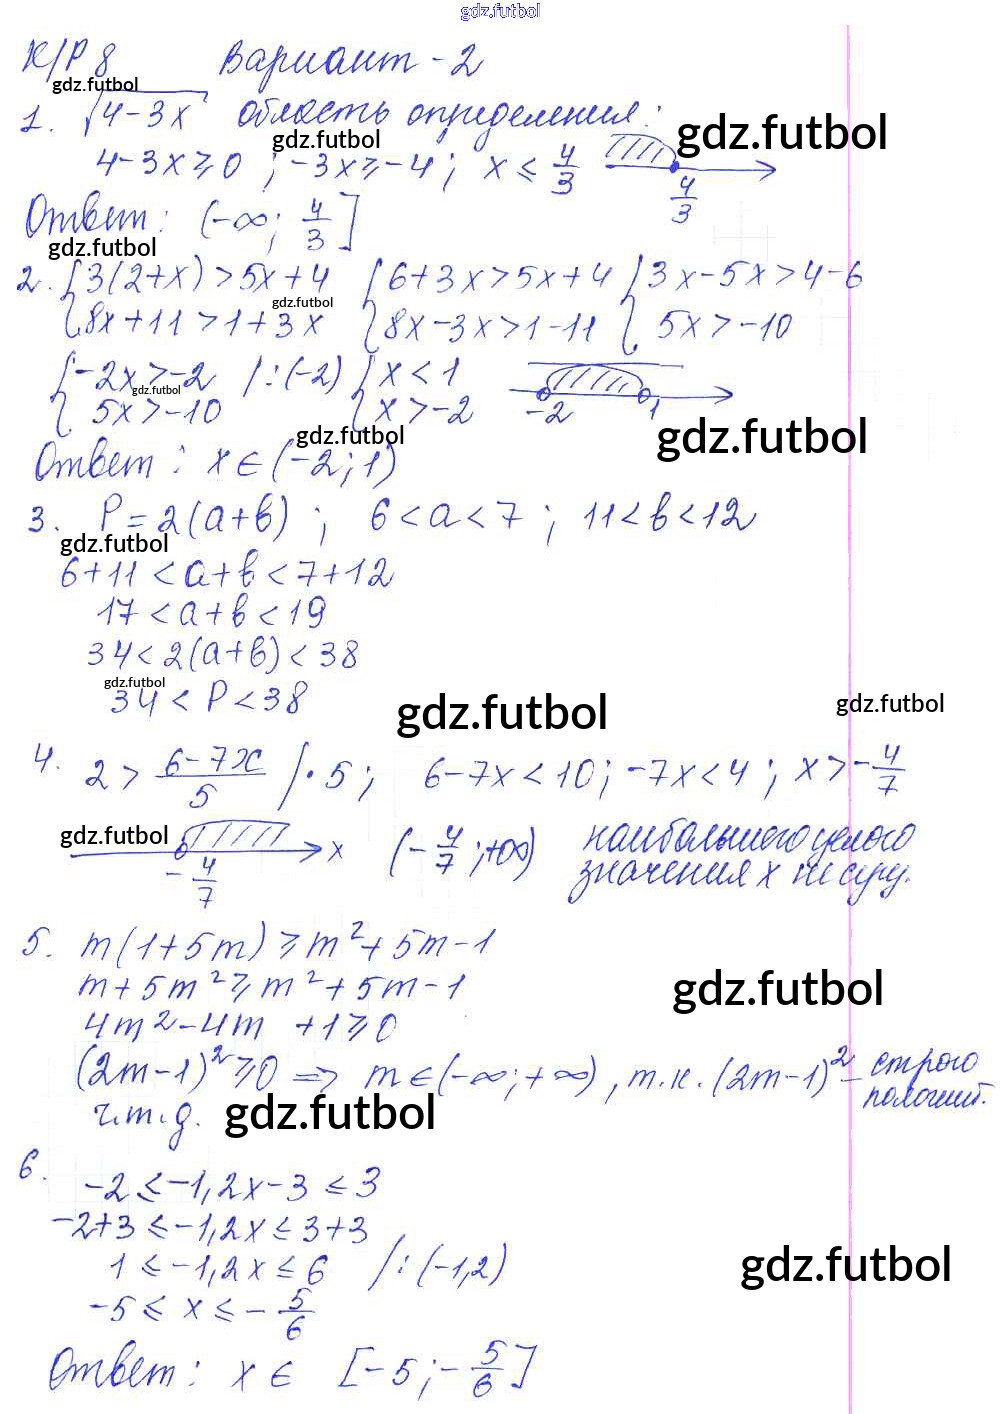 gdz.futbol
К/Р 8 Вариант - 2
gdz.futbol
1. √4-3x область определения:
gdz.futbol gdz.futbol
4-3x ⩾ 0 ; -3x ⩾ -4 ; x ⩽ 4/3 4/3
Ответ: (-∞; 4/3]
gdz.futbol
2. { 3(2+x) > 5x+4 { 6+3x > 5x+4 { 3x-5x > 4-6
gdz.futbol
8x+11 > 1+3x 8x-3x > 1-11 5x > -10
{ -2x > -2 /:(-2) { x < 1
gdz.futbol
5x > -10 x > -2 -2 1
gdz.futbol gdz.futbol
Ответ: x ∈ (-2; 1)
3. P = 2(a+b) ; 6 < a < 7 ; 11 < b < 12
gdz.futbol
6+11 < a+b < 7+12
17 < a+b < 19
34 < 2(a+b) < 38
gdz.futbol
34 < P < 38
gdz.futbol gdz.futbol
4. 2 > 6-7x/5 /· 5 ; 6-7x < 10 ; -7x < 4 ; x > -4/7
gdz.futbol
-4/7 x (-4/7 ; +∞) наибольшего целого
значения x не сущ.
5. m(1+5m) ⩾ m²+5m-1
m+5m² ⩾ m²+5m-1
gdz.futbol
4m²-4m +1 ⩾ 0
(2m-1)² ⩾ 0 => m ∈ (-∞; +∞), т.к. (2m-1)² - строго
положит.
ч.т.д.
gdz.futbol
6. -2 ⩽ -1,2x-3 ⩽ 3
-2+3 ⩽ -1,2x ⩽ 3+3
1 ⩽ -1,2x ⩽ 6 /:(-1,2)
gdz.futbol
-5 ⩽ x ⩽ -5/6
Ответ: x ∈ [-5; -5/6]